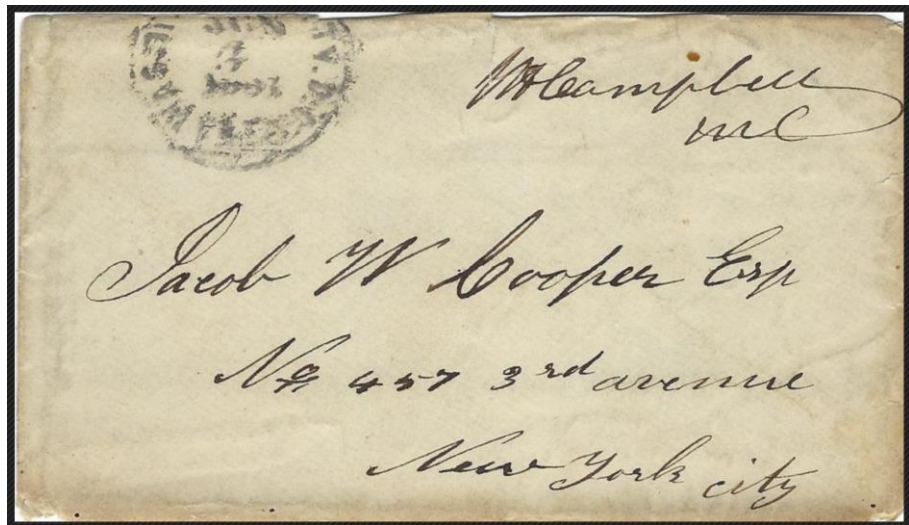 WASH
JUN
FREE
Campbell
MC
Jacob W Cooper Esq
No 457 3rd avenue
New York city